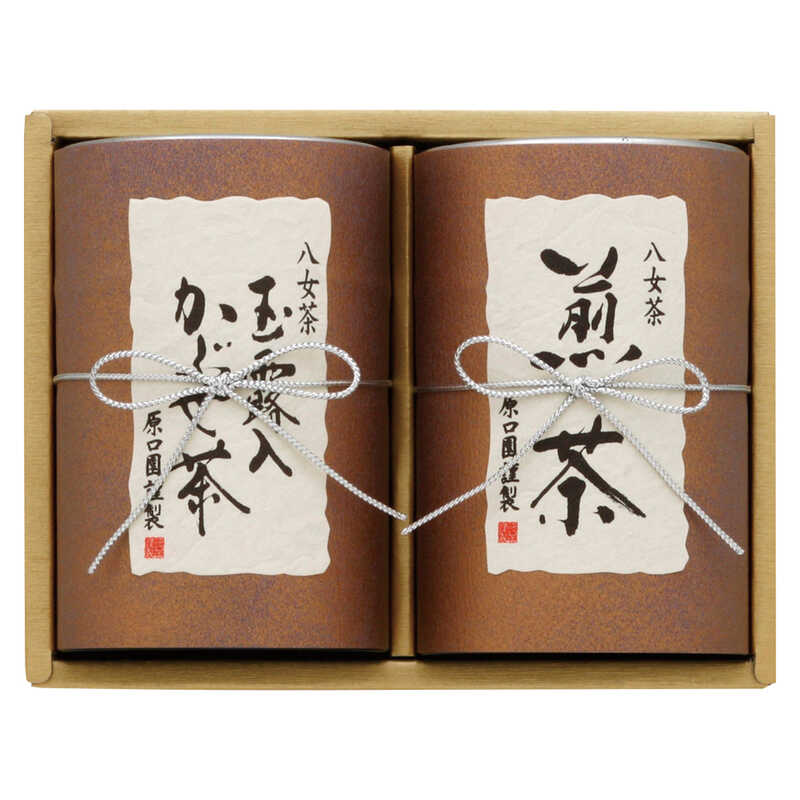 八女茶
玉露入
かぶせ茶
原口園謹製
八女茶
煎茶
原口園謹製